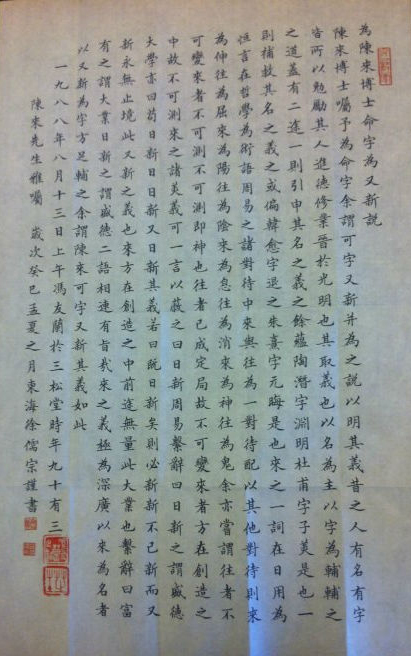 為陳來博士命字為又新說
陳來博士囑予為命字余謂可字又新并為之說以明其義昔之人有名有字
皆所以勉勵其人進德修業晉於光明也其取義也以名為主以字為輔輔之
之道蓋有二途一則引申其名之義之餘蘊陶潛字淵明杜甫字子美是也一
則補救其名之義之或偏韓愈字退之朱熹字元晦是也來之一詞在日用為
恒言在哲學為術語周易之諸對待中來與往為一對待配以其他對待則來
為伸往為屈來為陽往為陰來為息往為消來為神往為鬼余亦嘗謂往者不
可變來者不可測不可測即神也往者已成定局故不可變來者方在創造之
中故不可測來之諸美義可一言以蔽之曰日新周易繫辭曰日新之謂盛德
大學亦曰苟日新日日新又日新其義若曰既日新矣則必新新不已新而又
新永無止境此又新之義也來方在創造之中前途無量此大業也繫辭曰富
有之謂大業日新之謂盛德二語相連有旨哉來之義極為深廣以來為名者
以又新為字方足輔之余謂陳來可字又新其義如此
一九八八年八月十三日上午馮友蘭於三松堂時年九十有三
陳來先生雅囑 歲次癸巳孟夏之月東海徐儒宗謹書